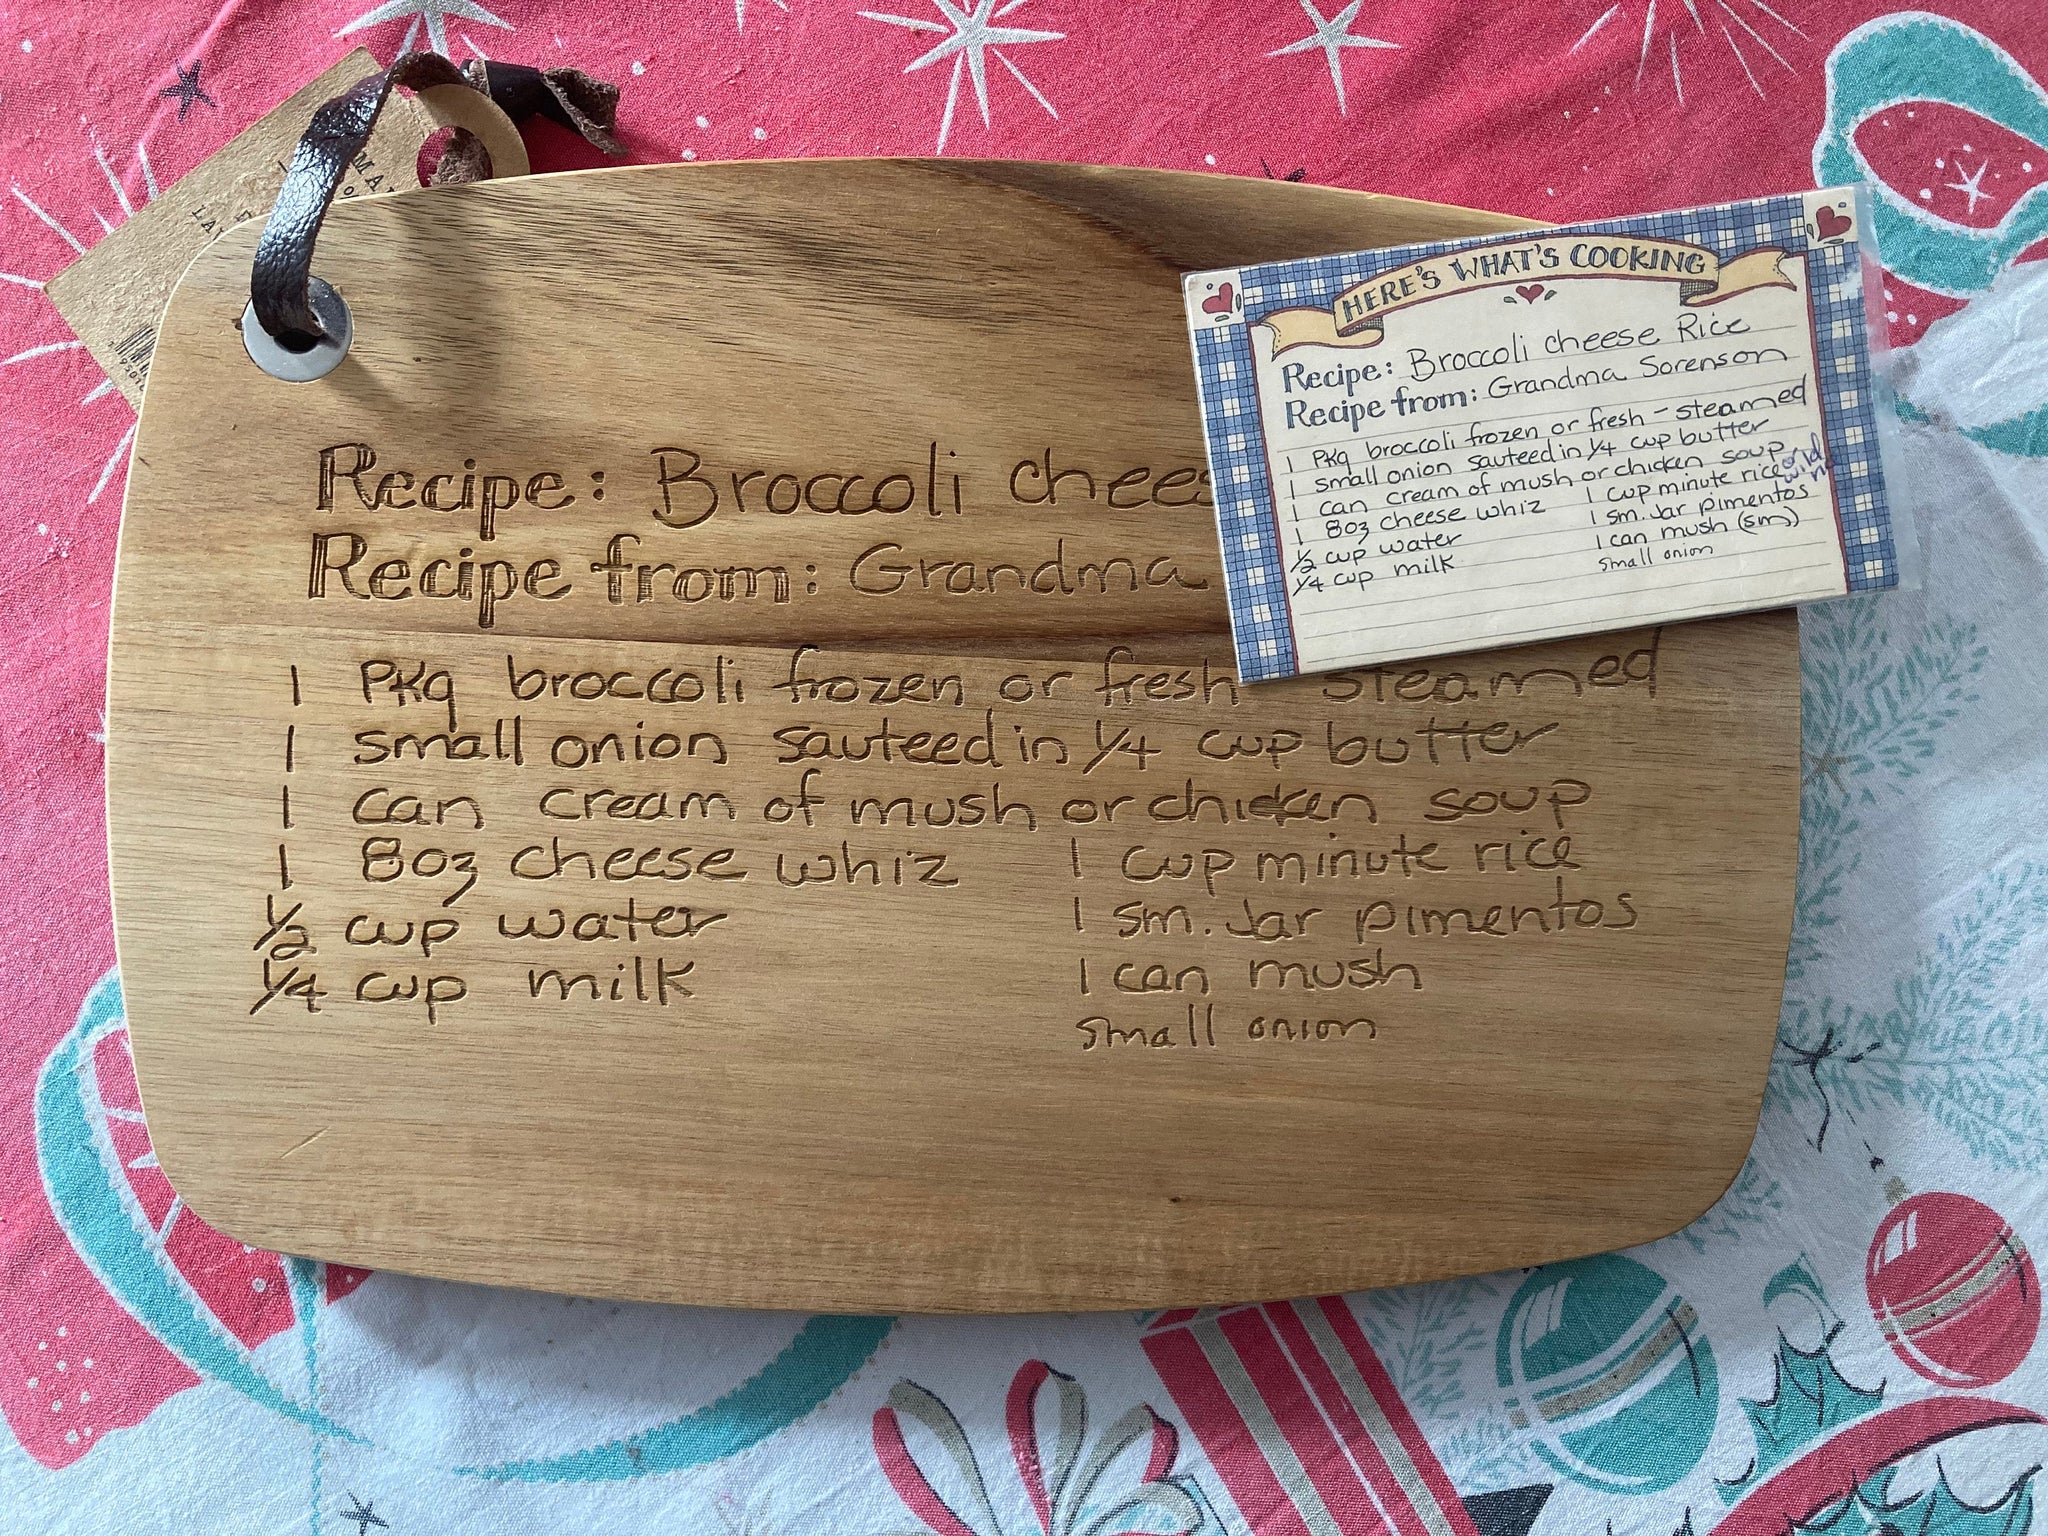 Recipe: Broccoli chees
Recipe from: Grandma
1 PKg broccoli frozen or fresh steamed
1 small onion sauteed in 1/4 cup butter
1 can cream of mush or chicken soup
1 8oz cheese whiz 1 cup minute rice
1/2 cup water 1 sm. Jar pimentos
1/4 cup milk 1 can mush
small onion
HERE'S WHAT'S COOKING
Recipe: Broccoli cheese Rice
Recipe from: Grandma Sorenson
1 PKg broccoli frozen or fresh - steamed
1 small onion sauteed in 1/4 cup butter
1 can cream of mush or chicken soup
1 8oz cheese whiz 1 cup minute rice or wild
1/2 cup water 1 sm. Jar pimentos
1/4 cup milk 1 can mush (sm)
small onion